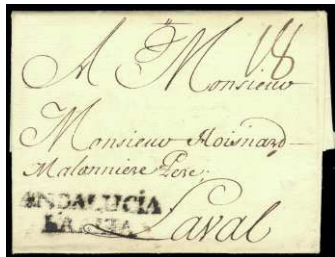 18
A Monsieur
Monsieur Hoisnard
Malonniere Pere.
ANDALUCÍA
Laval